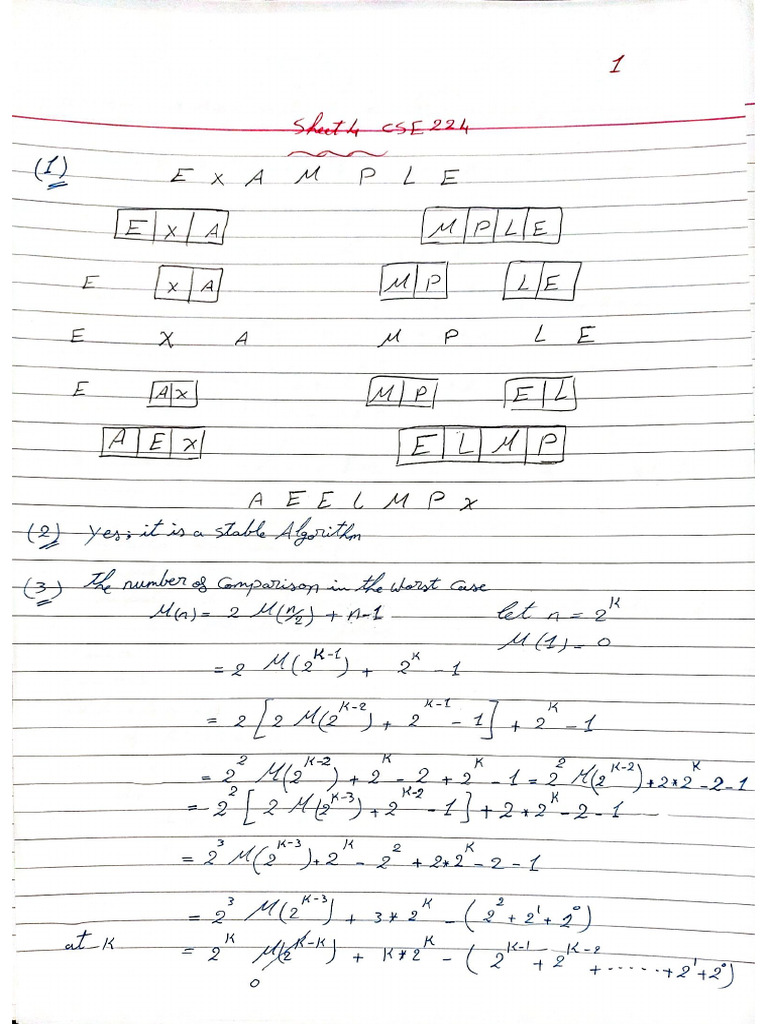 1
Sheet 4 CSE 224
(1) E X A M P L E
E X A M P L E
E X A M P L E
E X A M P L E
E A X M P E L
A E X E L M P
A E E L M P X
(2) Yes; it is a stable Algorithm
(3) the number of Comparison in the Worst Case
M(n) = 2 M(n/2) + n-1 let n = 2^K
M(1) = 0
= 2 M(2^{K-1}) + 2^K - 1
= 2 [ 2 M(2^{K-2}) + 2^{K-1} - 1 ] + 2^K - 1
= 2^2 M(2^{K-2}) + 2^K - 2 + 2^K - 1 = 2^2 M(2^{K-2}) + 2*2^K - 2 - 1
= 2^2 [ 2 M(2^{K-3}) + 2^{K-2} - 1 ] + 2*2^K - 2 - 1
= 2^3 M(2^{K-3}) + 2^K - 2^2 + 2*2^K - 2 - 1
= 2^3 M(2^{K-3}) + 3*2^K - (2^2 + 2^1 + 2^0)
at K = 2^K M(2^{K-K}) + K*2^K - (2^{K-1} + 2^{K-2} + ...... + 2^1 + 2^0)
0